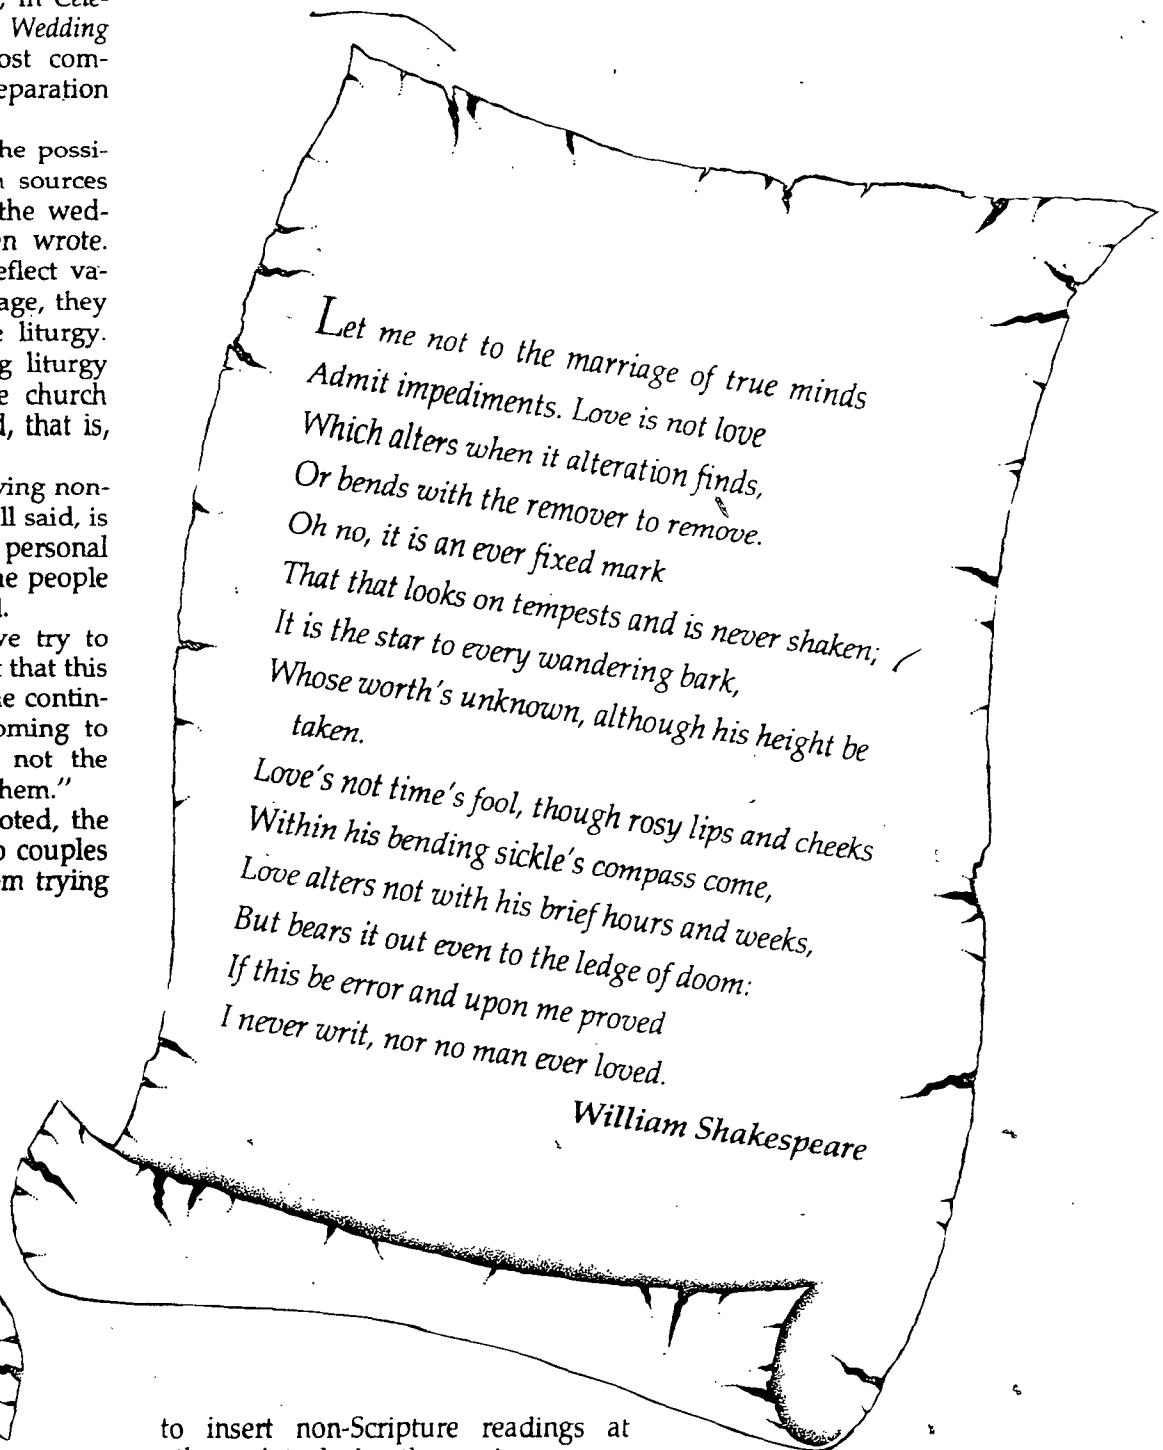 Wedding
ost com-
eparation
he possi-
sources
the wed-
en wrote.
eflect va-
age, they
liturgy.
g liturgy
church
d, that is,
ving non-
ll said, is
personal
ne people
ve try to
that this
e contin-
oming to
not the
hem."
oted, the
couples
m trying
Let me not to the marriage of true minds
Admit impediments. Love is not love
Which alters when it alteration finds,
Or bends with the remover to remove.
Oh no, it is an ever fixed mark
That that looks on tempests and is never shaken;
It is the star to every wandering bark,
Whose worth's unknown, although his height be
taken.
Love's not time's fool, though rosy lips and cheeks
Within his bending sickle's compass come,
Love alters not with his brief hours and weeks,
But bears it out even to the ledge of doom:
If this be error and upon me proved
I never writ, nor no man ever loved.
William Shakespeare
to insert non-Scripture readings at